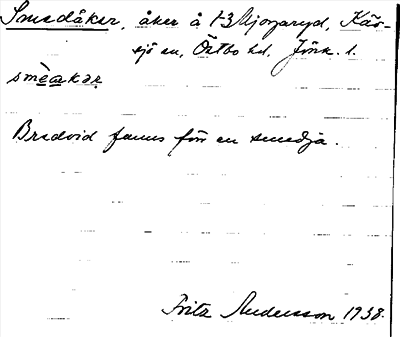 Smedåker, åker å 1-3 Mjogaryd, Kär-
sjö sn, Östbo hd. Jönk. l.
smèakar
Bredvid fanns förr en smedja.
Fritz Andersson 1938.